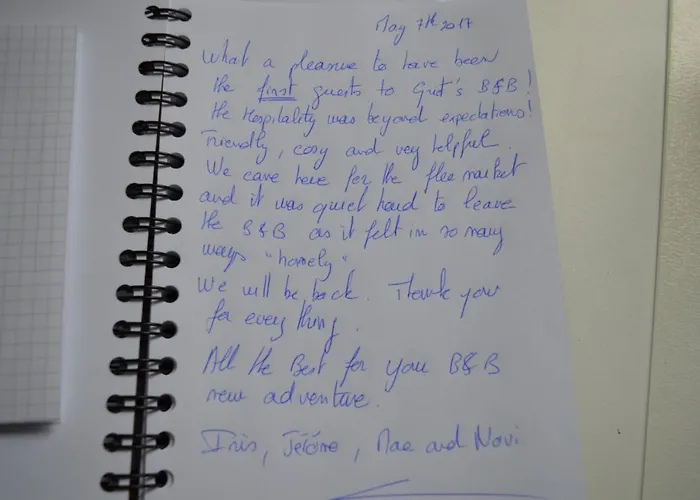 May 7th 2017
What a pleasure to have been
the first guests to Gut's B&B!
the Hospitality was beyond expectations!
Friendly, cosy and very helpful.
We came here for the flea market
and it was quiet hard to leave
the B&B as it felt in so many
ways "homely"
We will be back. Thank you
for every thing.
All the Best for you B&B
new adventure.
Iris, Jérôme, Mae and Novi